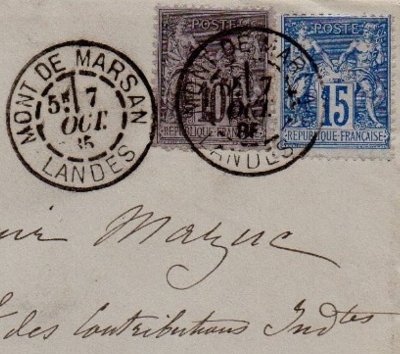 MONT DE MARSAN
5E 7
OCT.
85
LANDES
POSTE
10
REPUBLIQUE FRANÇAISE
MONT DE MARSAN
7
OCT.
LANDES
POSTE
15
REPUBLIQUE-FRANÇAISE
Mazuc
des Contributions Indtes